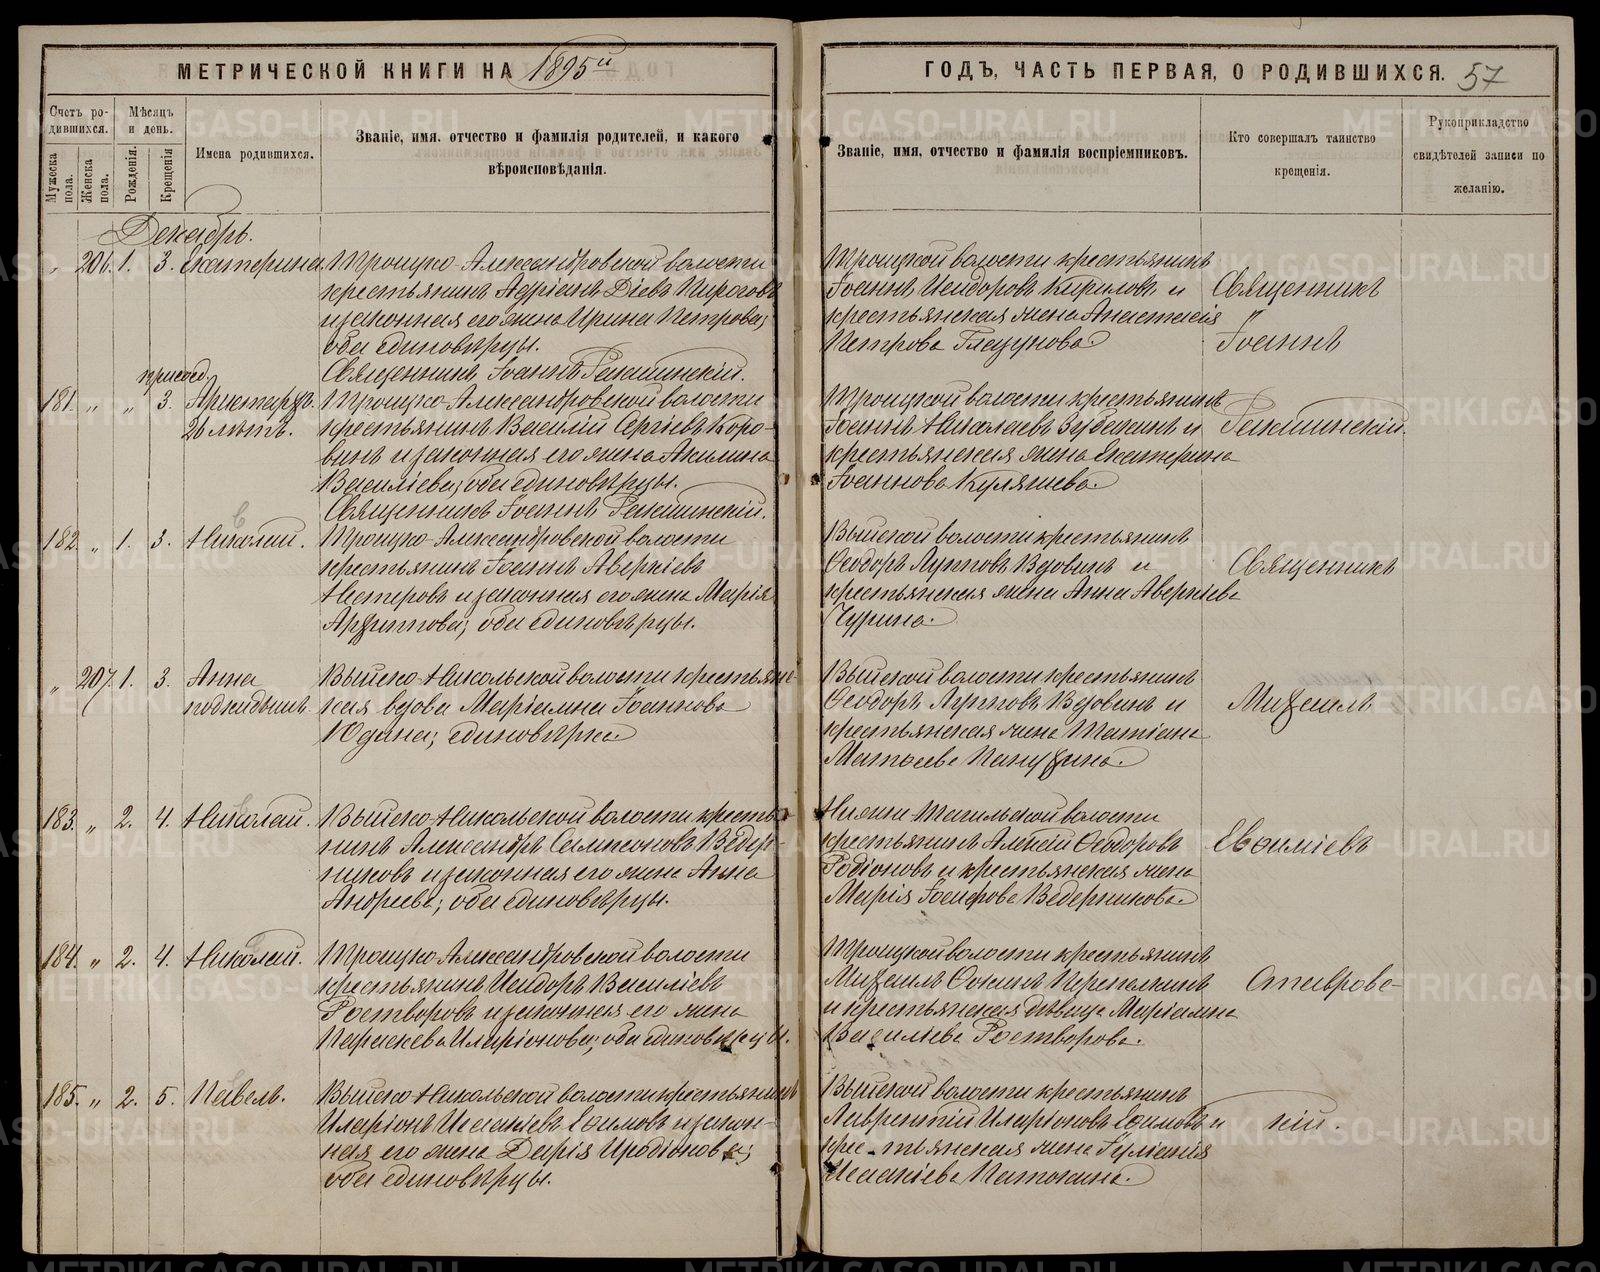 МЕТРИЧЕСКОЙ КНИГИ НА 1895й
ГОДЪ, ЧАСТЬ ПЕРВАЯ, О РОДИВШИХСЯ. 57
Счетъ ро-
дившихся.
Мѣсяцъ
и день.
Мужеска
пола.
Женска
пола.
Рожденія.
Крещенія
Имена родившихся.
Званіе, имя, отчество и фамилія родителей, и какого
вѣроисповѣданія.
Званіе, имя, отчество и фамилія воспріемниковъ.
Кто совершалъ таинство
крещенія.
Рукоприкладство
свидѣтелей записи по
желанію.
Декабрь.
" 206. 1. 3. Екатерина
Троицко-Александровской волости
крестьянинъ Адріанъ Діевъ Пироговъ
и законная его жена Ирина Петрова;
оба единовѣрцы.
Священникъ Іоаннъ
Троицкой волости крестьянинъ
Іоаннъ Исидоровъ Кириловъ и
крестьянская жена Анастасія
Петрова Глазунова
Священникъ
Іоаннъ
присоед.
181. " " 3. Аристархъ.
26 лѣтъ.
Троицко-Александровской волости
крестьянинъ Василій Сергіевъ Коро-
винъ и законная его жена Акилина
Васильева; оба единовѣрцы.
Священникъ Іоаннъ
Троицкой волости крестьянинъ
Іоаннъ Николаевъ Зубакинъ и
крестьянская жена Екатерина
Іоаннова Куляшева.
182. " 1. 3. Николай.
Троицко-Александровской волости
крестьянинъ Іоаннъ Аверкіевъ
Нестеровъ и законная его жена Марія
Архипова; оба единовѣрцы.
Выйской волости крестьянинъ
Ѳеодоръ Лупповъ Вдовинъ и
крестьянская жена Анна Аверкіева
Чурина.
Священникъ
" 207. 1. 3. Анна
подкидышъ.
Выйско-Никольской волости крестьянс-
кая вдова Маріамна Іоаннова
Юдина; единовѣрка
Выйской волости крестьянинъ
Ѳеодоръ Лупповъ Вдовинъ и
крестьянская жена Татіана
Матѳеева Папухина.
Михаилъ
183. " 2. 4. Николай.
Выйско-Никольской волости крестья-
нинъ Александръ Сампсоновъ Ведер-
никовъ и законная его жена Анна
Андреева; оба единовѣрцы.
Нижне-Тагильской волости
крестьянинъ Алексій Ѳеодоровъ
Родіоновъ и крестьянская жена
Марія Іосифова Ведерникова.
Евѳиміевъ
184. " 2. 4. Николай.
Троицко-Александровской волости
крестьянинъ Исидоръ Василіевъ
Растворовъ и законная его жена
Параскева Иларіонова; оба единовѣрцы.
Троицкой волости крестьянинъ
Михаилъ Ѳокинъ Перепалкинъ
и крестьянская дѣвица Маріамна
Василіева Растворова.
Ставров-
185. " 2. 5. Павелъ.
Выйско-Никольской волости крестьянинъ
Иларіонъ Исакіевъ Еѳимовъ и закон-
ная его жена Дарія Иродіонова;
оба единовѣрцы.
Выйской волости крестьянинъ
Лаврентій Иларіоновъ Еѳимовъ и
крестьянская жена Іуліанія
Исаакіева Патокина.
скій.